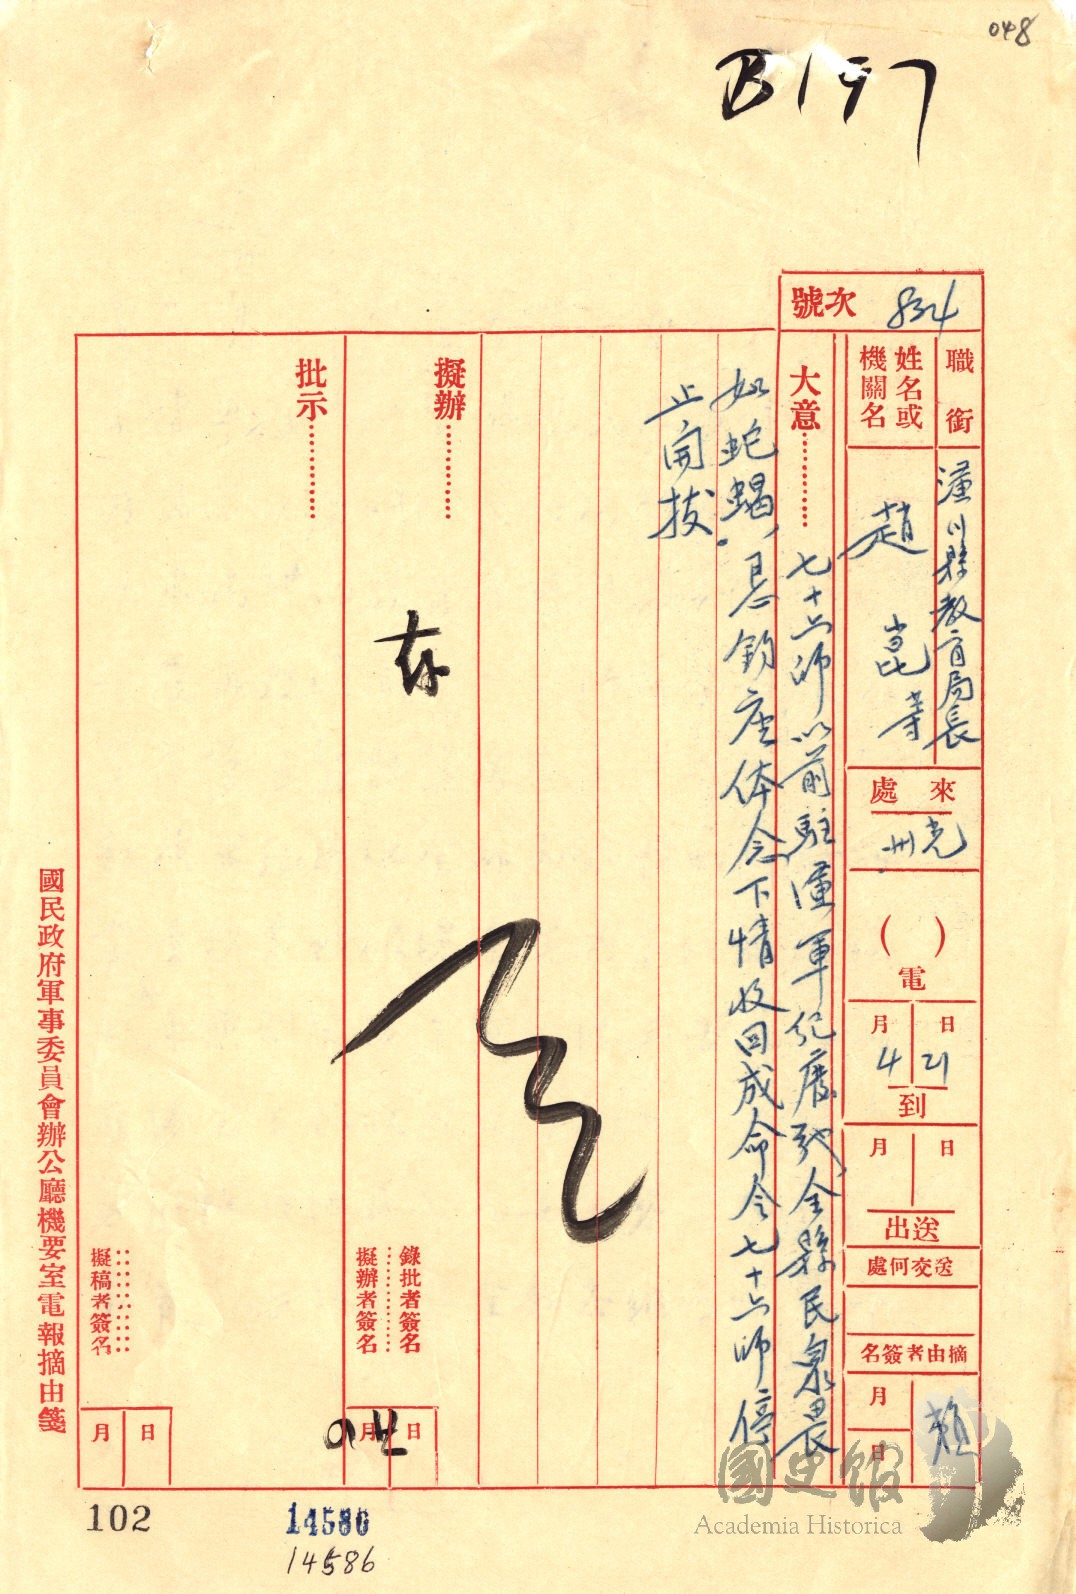 048
B157
號次 834
職銜 潢川縣教育局長
姓名或機關名 趙崑等
來處 光州
（ ）電
4月21日到
月 日送出
送交何處
摘由者簽名 賴
月 日
大意⋯⋯⋯⋯ 七十六師以前駐潢軍紀廢弛全縣民衆畏
如蛇蝎，恳鈞座体念下情收回成命令七十六師停
止開拔。
擬辦⋯⋯⋯⋯
存
錄批者簽名
擬辦者簽名
月 日
批示⋯⋯⋯⋯
擬稿者簽名
月 日
國民政府軍事委員會辦公廳機要室電報摘由箋
102
14586
14586
國史館
Academia Historica